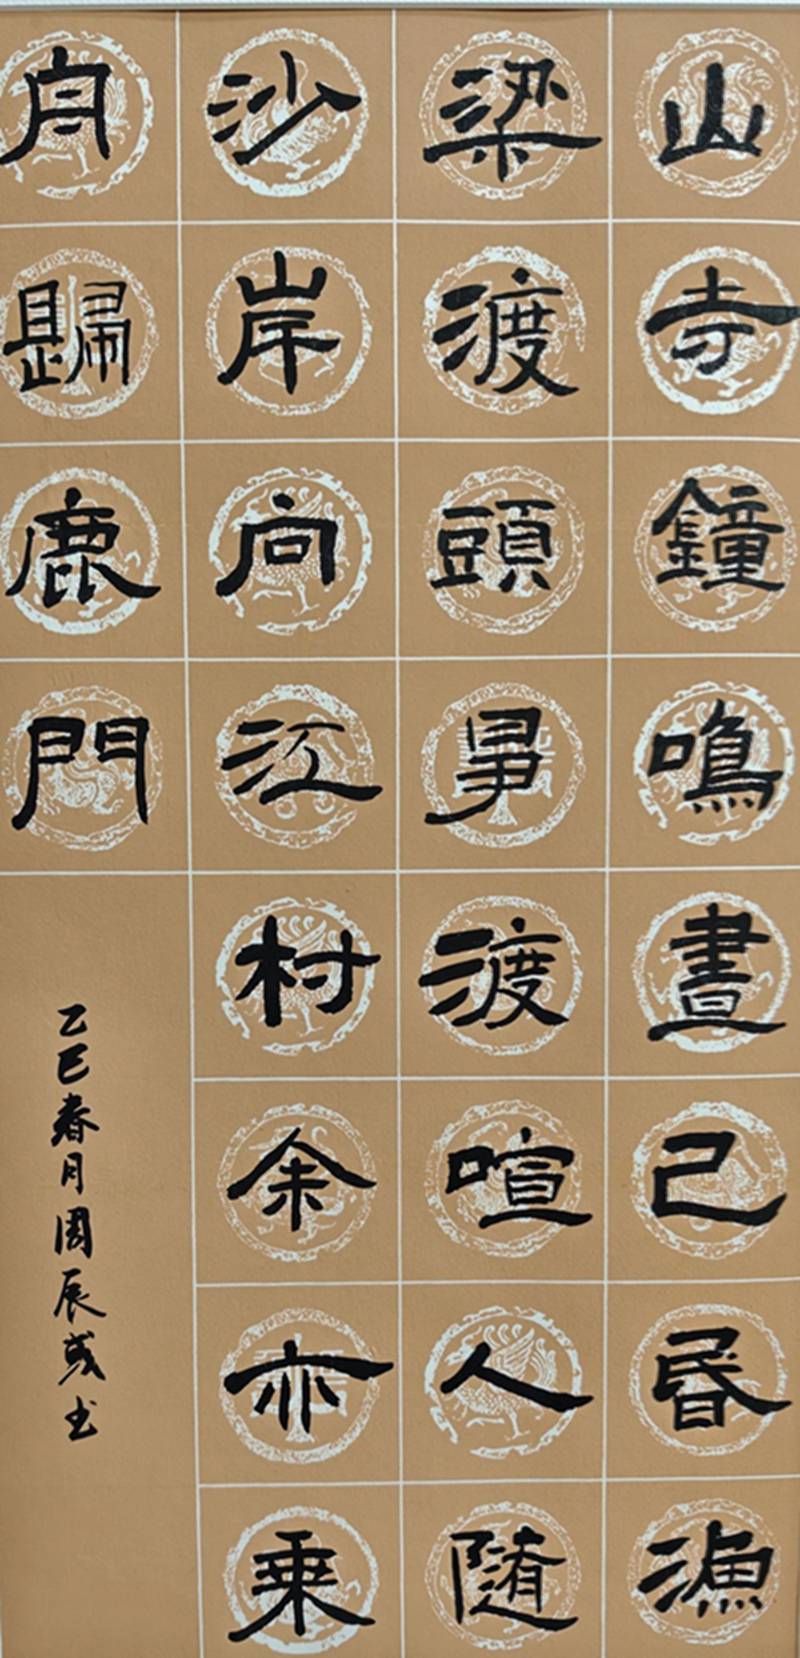 山寺鐘鳴晝己昏漁
梁渡頭爭渡喧人隨
沙岸向江村余亦乘
舟歸鹿門
乙巳春月周辰彧书